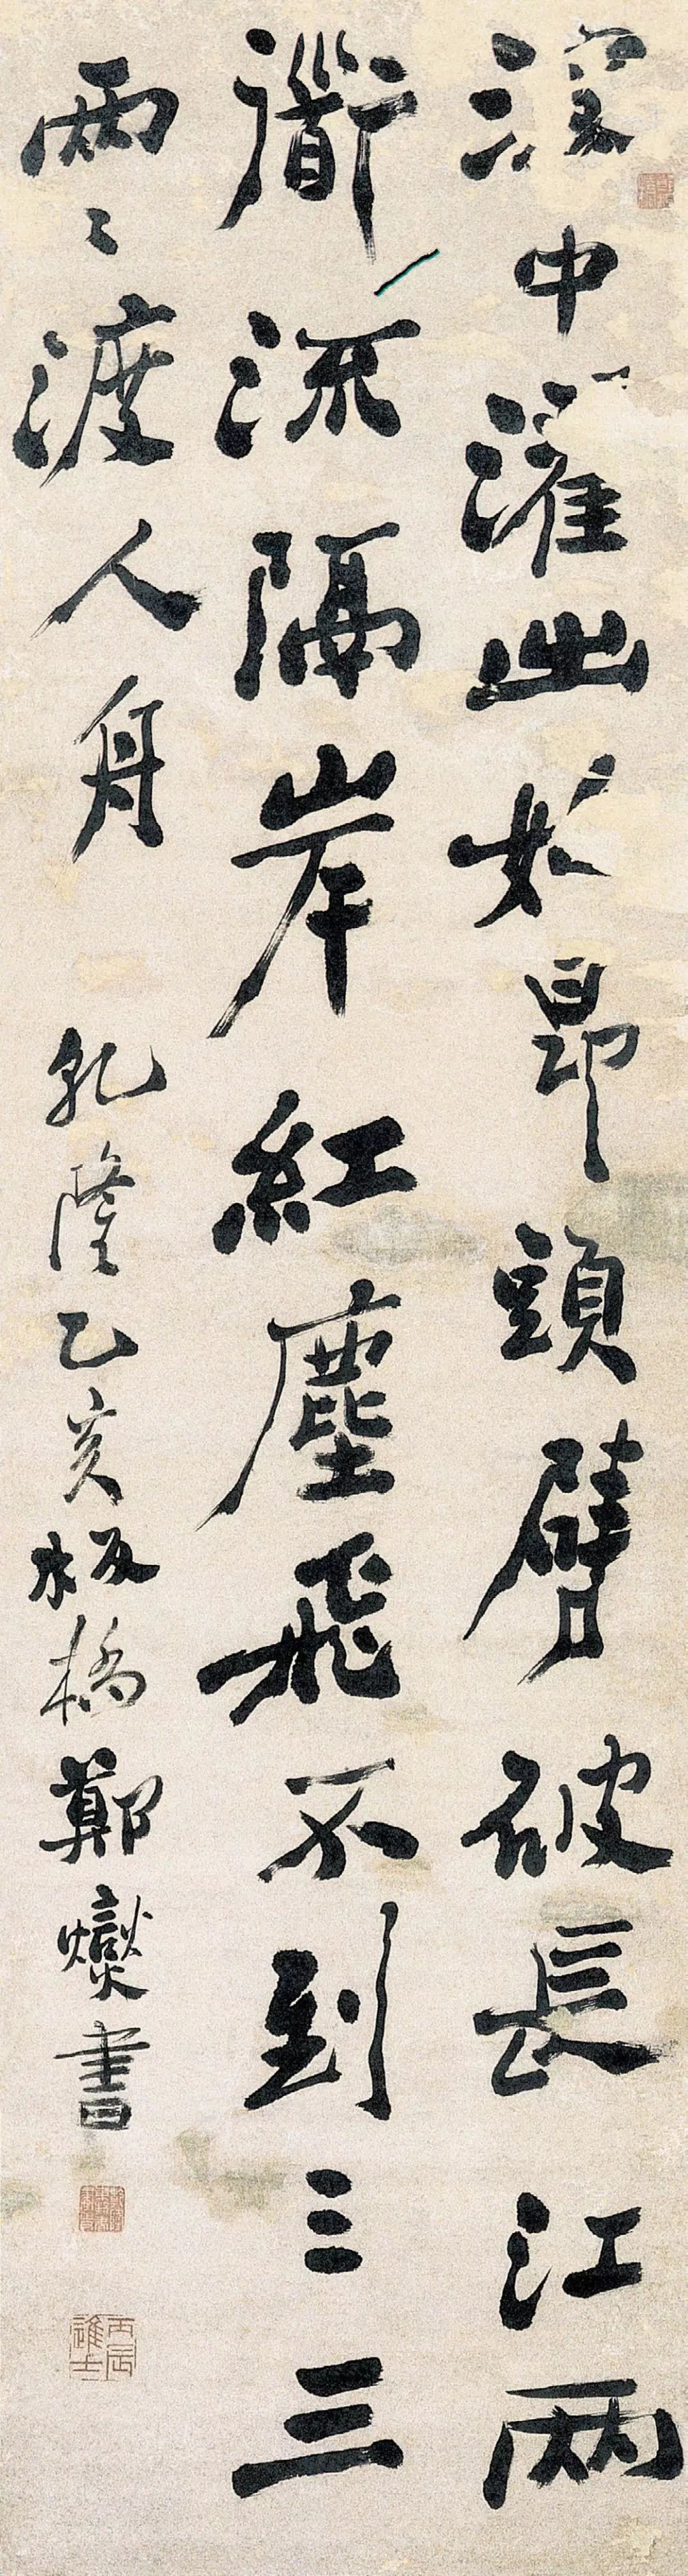 中濯出妙昂頭劈破長江兩
衜流隔岸紅塵飛不到三三
兩〻渡人舟 乾隆乙亥板橋鄭燮書
丙辰進士